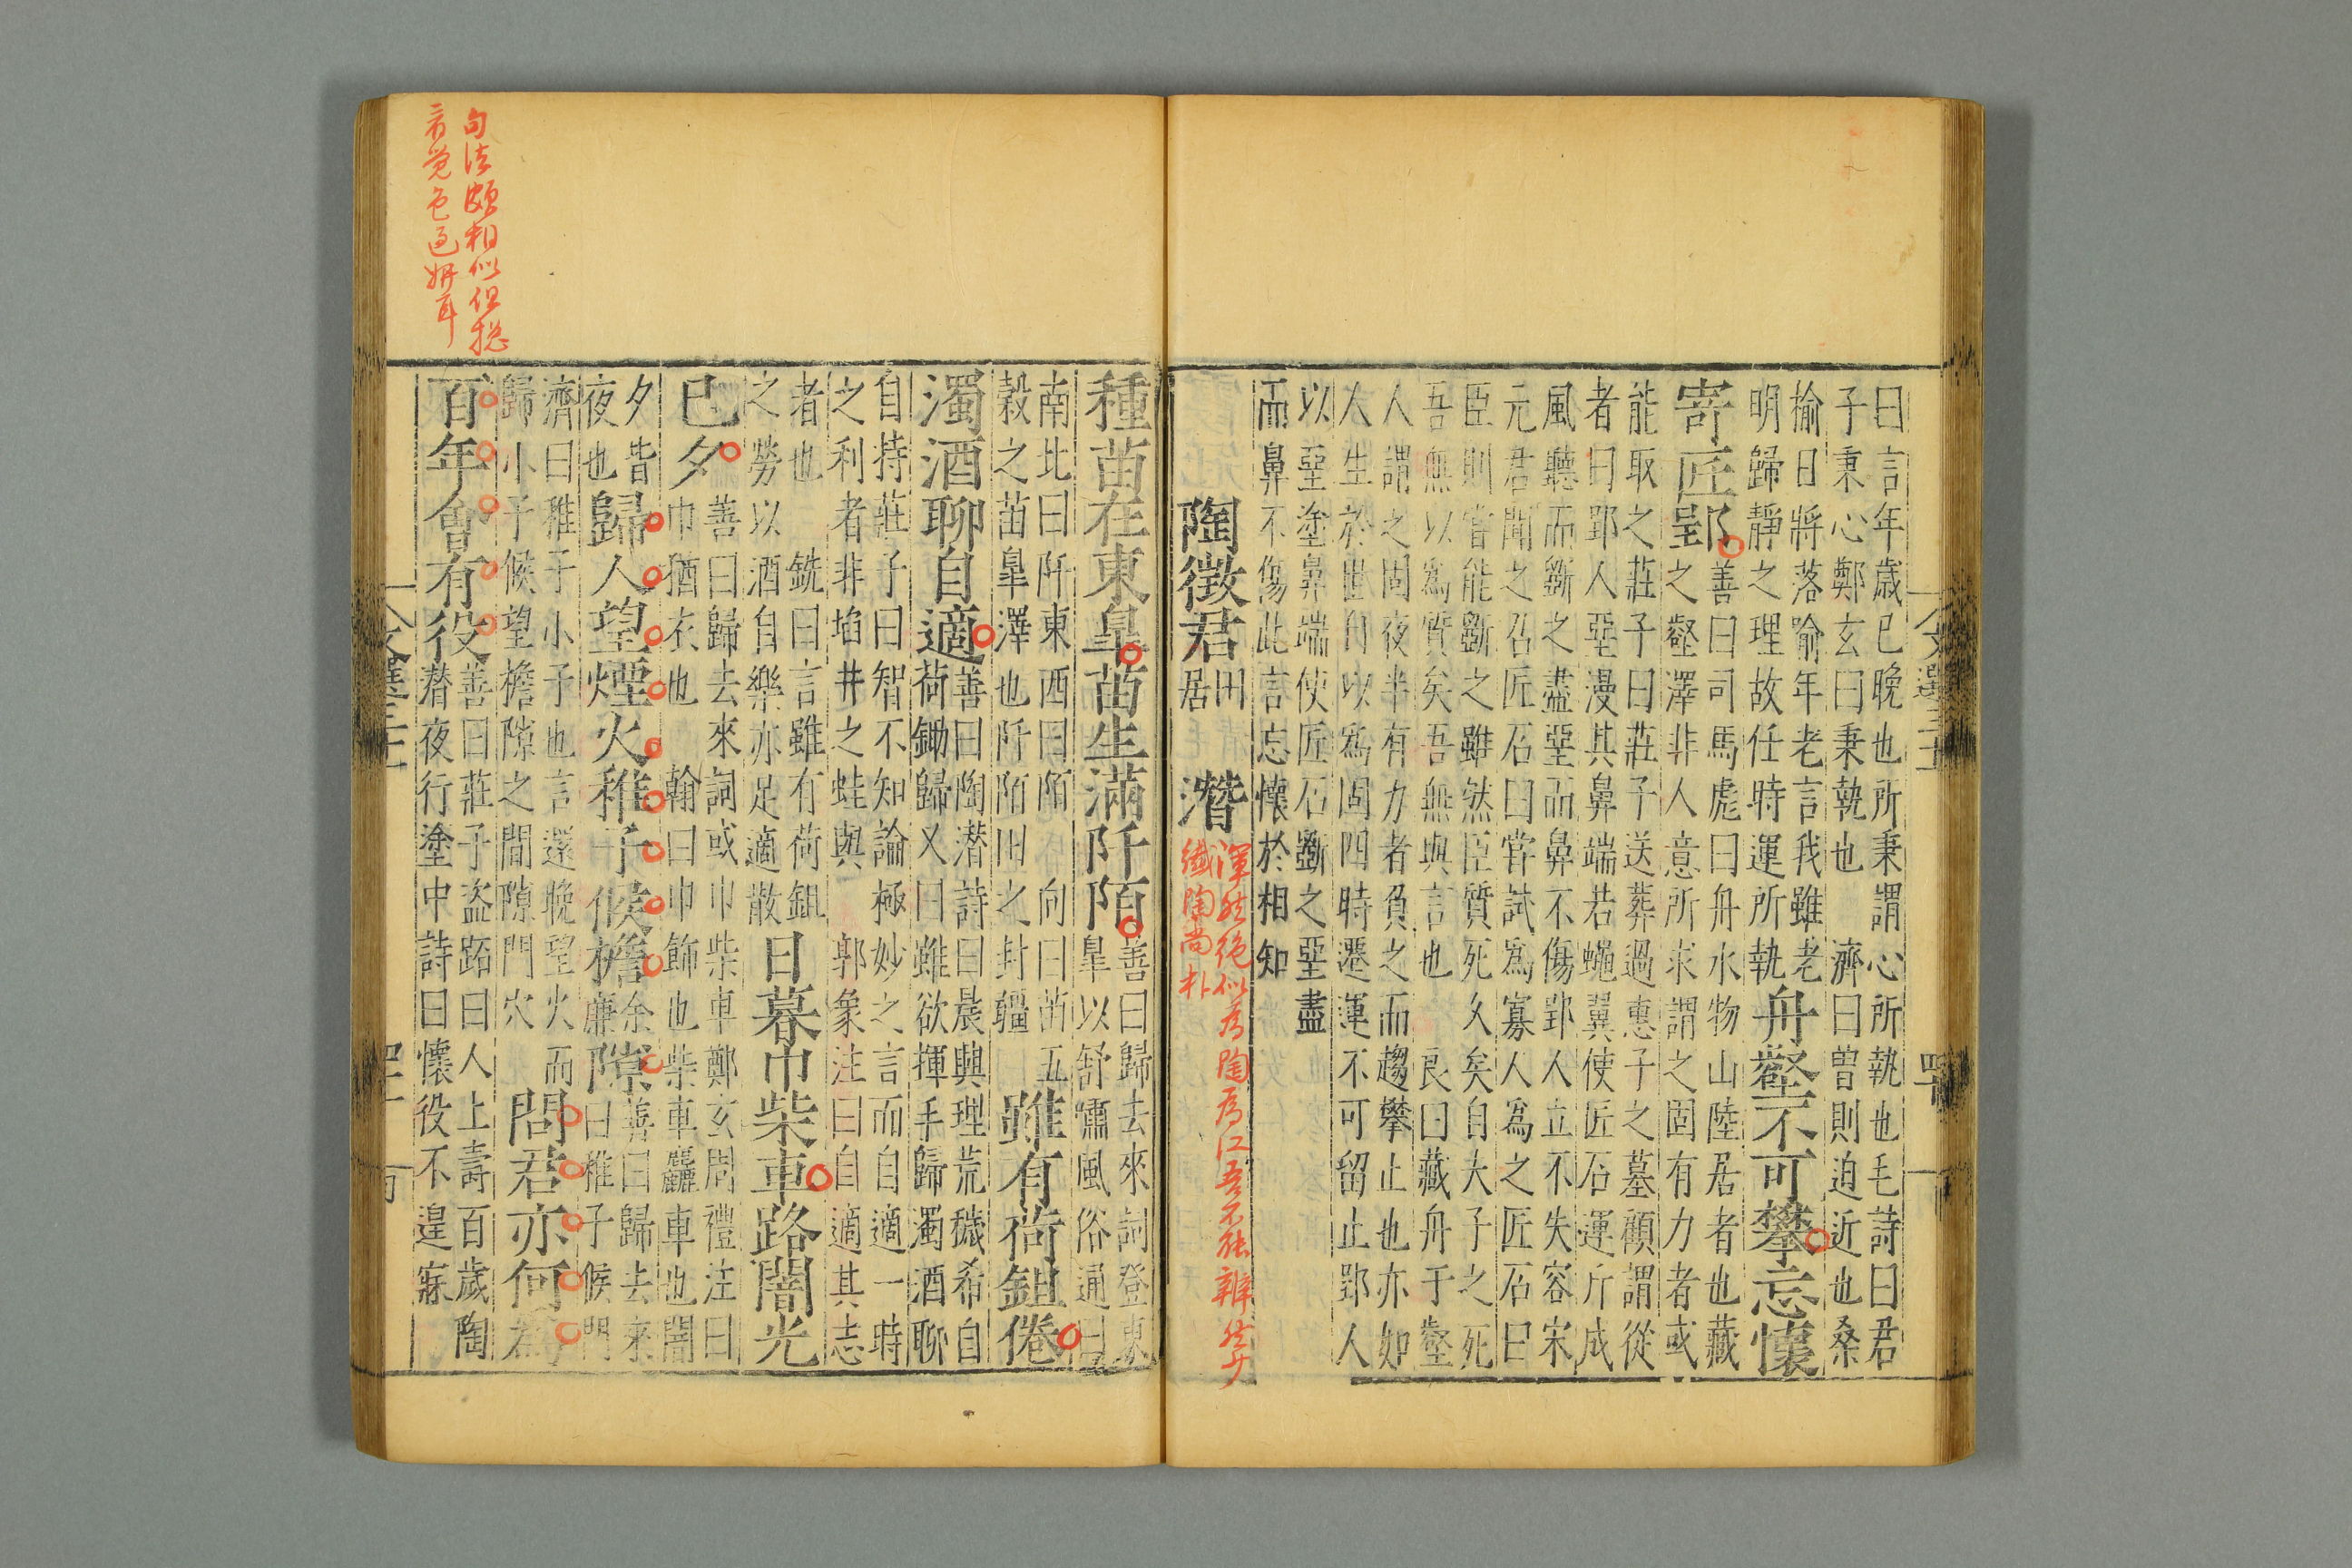 曰言年歲已晚也所秉謂心所執也毛詩曰君
子秉心鄭玄曰秉執也 濟曰曾則迫近也桑
榆日將落喻年老言我雖老
明歸靜之理故任時運所執
舟壑不可攀忘懷
寄匠郢
善曰司馬彪曰舟水物山陸居者也藏
之壑澤非人意所求謂之固有力者或
能取之莊子曰莊子送葬過惠子之墓顧謂從
者曰郢人堊漫其鼻端若蠅翼使匠石運斤成
風聽而斲之盡堊而鼻不傷郢人立不失容宋
元君聞之召匠石曰嘗試為寡人為之匠石曰
臣則嘗能斲之雖然臣質死久矣自夫子之死
吾無以為質矣吾無與言也 良曰藏舟于壑
人謂之固夜半有力者負之而趨攀止也亦如
人生於世自以為固四時遷運不可留止郢人
以堊塗鼻端使匠石斲之堊盡
而鼻不傷此言忘懷於相知
陶徵君
田
居
潛
渾然絕似為陶為江吾不能辨然少
纖陶尚朴
種苗在東皐苗生滿阡陌
善曰歸去來詞登東
皐以舒嘯風俗通曰
南北曰阡東西曰陌 向曰苗五
穀之苗皐澤也阡陌田之封疆
雖有荷鉏倦
濁酒聊自適
善曰陶潜詩曰晨興理荒穢希自
荷鋤歸又曰雖欲揮手歸濁酒聊
自持莊子曰智不知論極妙之言而自適一時
之利者非埳井之蛙與 郭象注曰自適其志
者也 銑曰言雖有荷鉏
之勞以酒自樂亦足適散
日暮巾柴車路闇光
已夕
善曰歸去來詞或巾柴車鄭玄周禮注曰
巾猶衣也 翰曰巾飾也柴車麤車也闇
夕皆
夜也
歸人望煙火稚子候檐隙
善曰歸去來
曰稚子候門
濟曰稚子小子也言還晚望火而
歸小子候望檐隙之間隙門穴
問君亦何為
百年會有役
善曰莊子盜跖曰人上壽百歲陶
潜夜行塗中詩曰懷役不遑寐
句法頗相似但摠
帝覺色過妍耳
文選三十一
四十